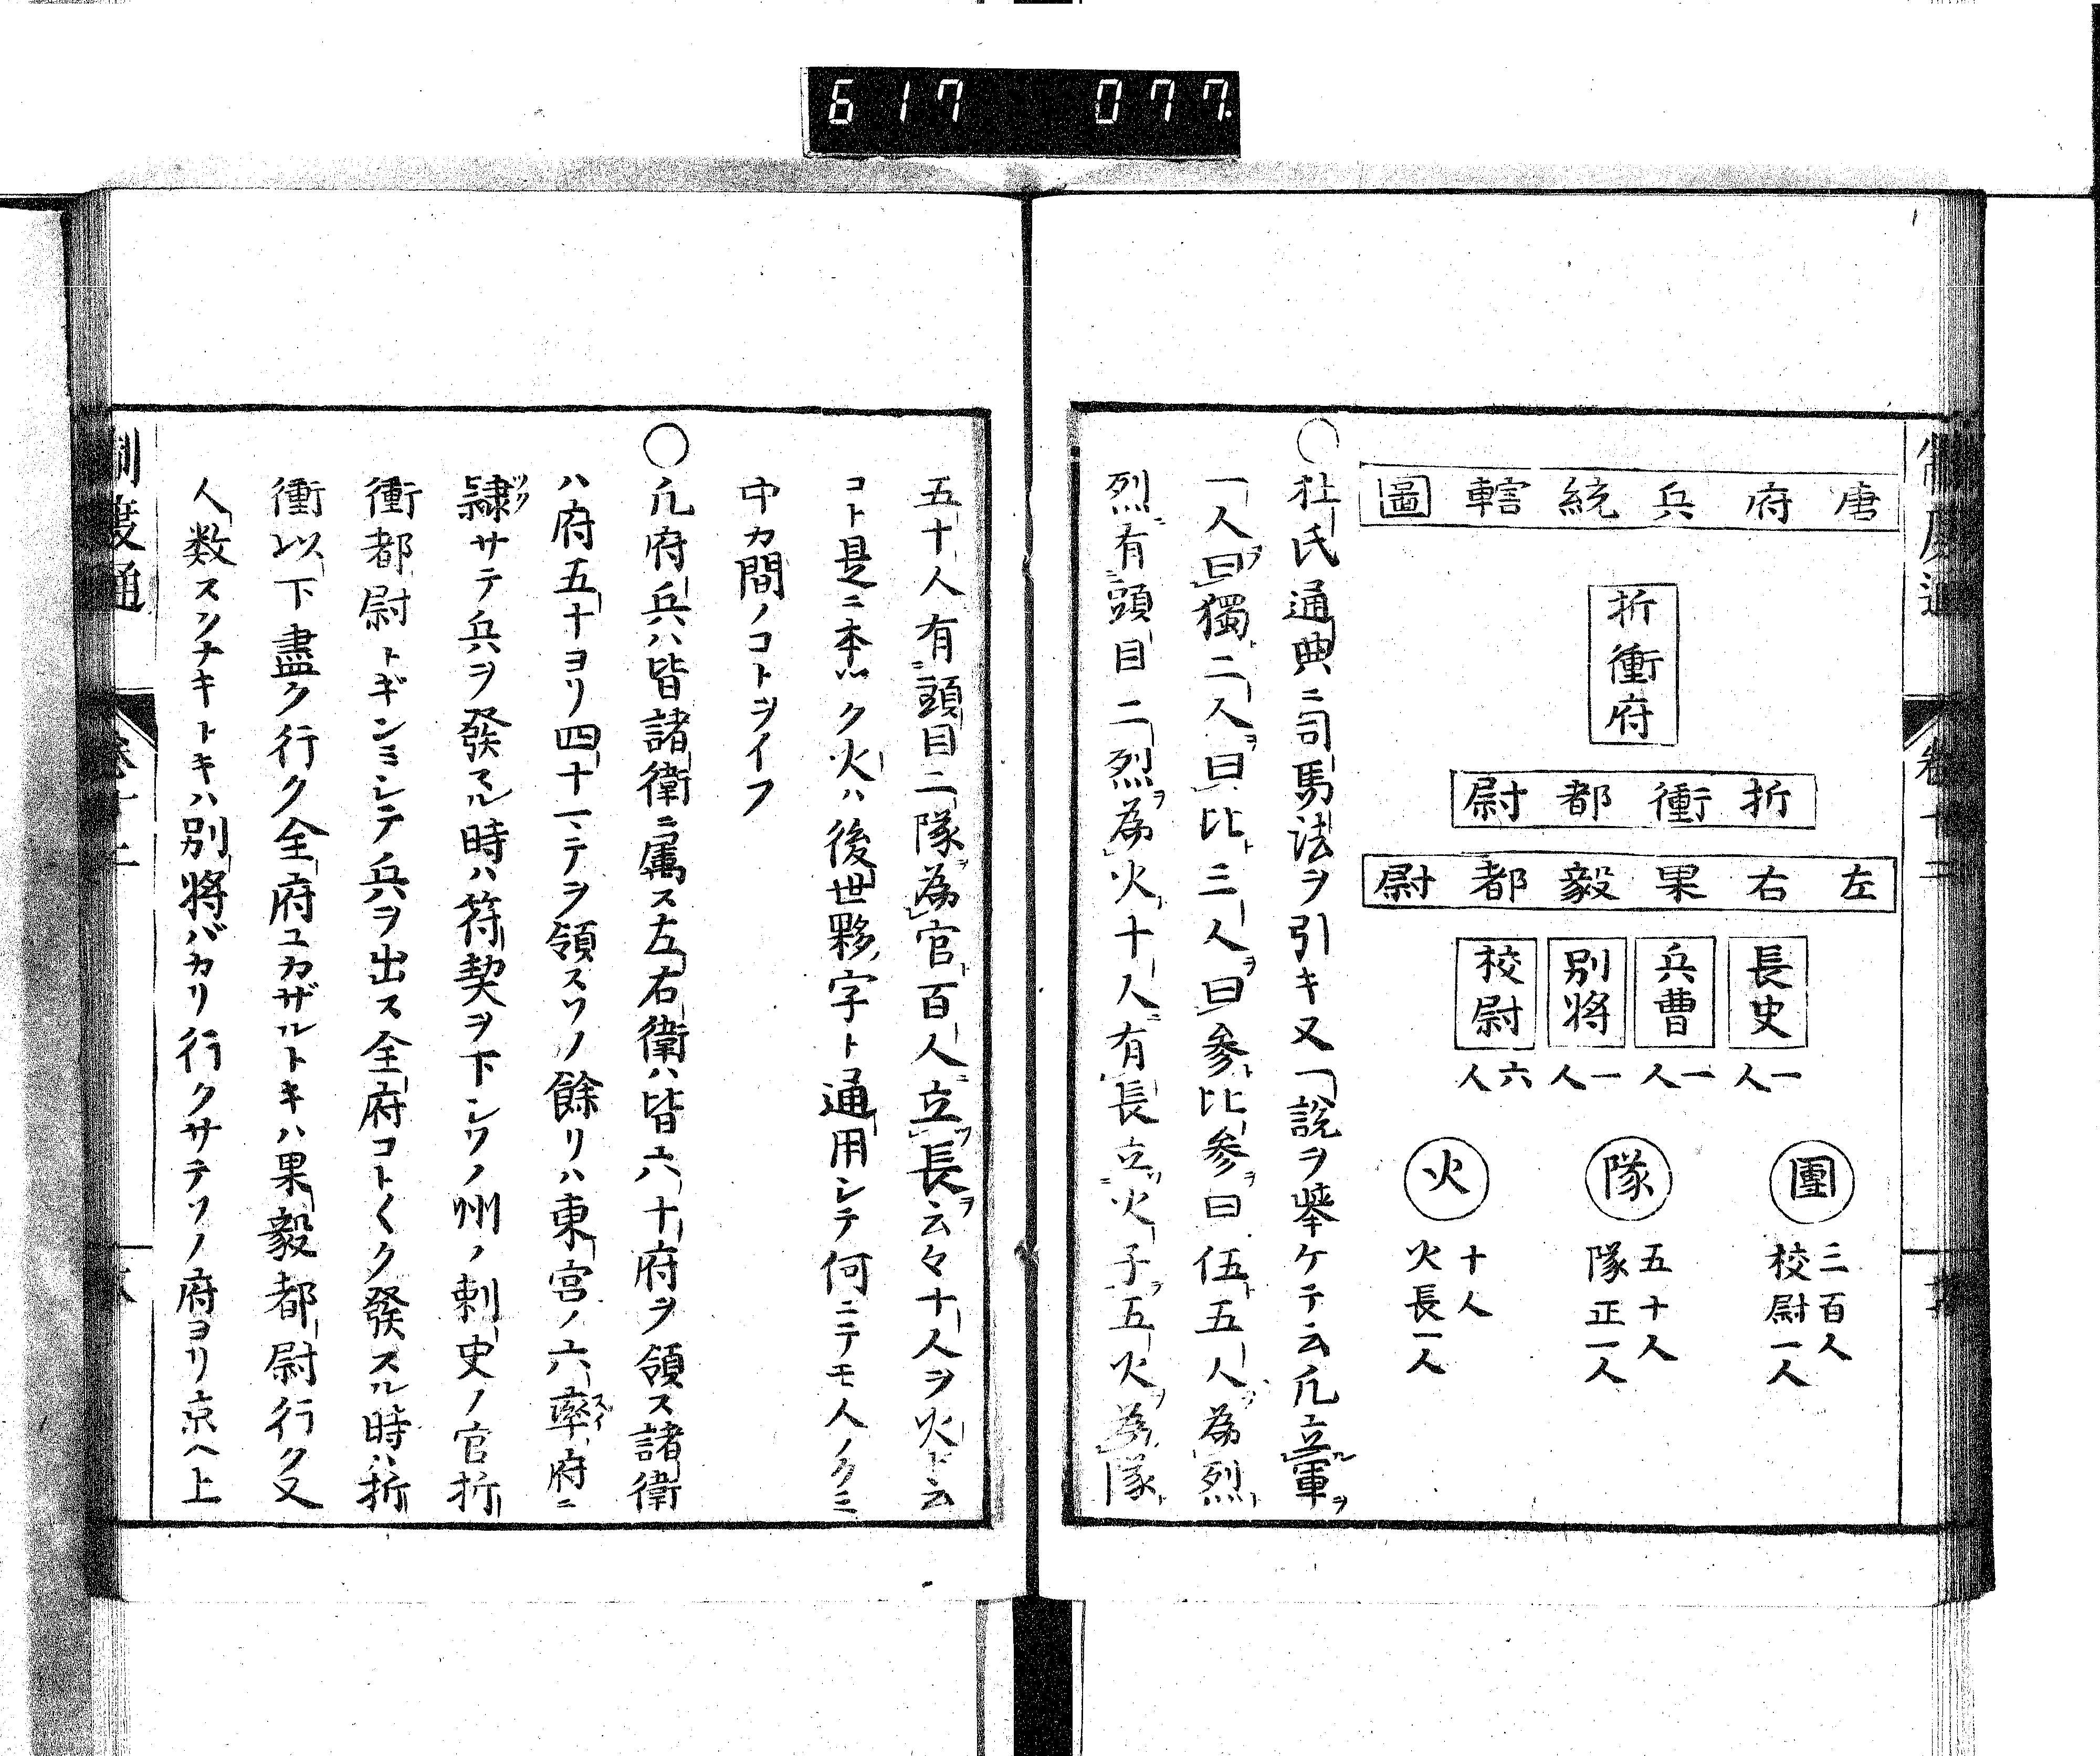 617 077
制度通
卷十二
唐府兵統轄圖
折衝府
折衝都尉
左右果毅都尉
長史 一人
兵曹 一人
別將 一人
校尉 六人
團 三百人 校尉一人
隊 五十人 隊正一人
火 十人 火長一人
○杜氏通典ニ司馬法ヲ引キ又一說ヲ舉ケテ云凡立軍ヲ
一人曰獨二人曰比三人曰參比參曰伍五人爲烈
烈有頭目二烈爲火十人有長立火子五火爲隊
五十人有頭目二隊爲官百人立長云々十人ヲ火ト云
コト是ニ本ツク火ハ後世夥字ト通用シテ何ニテモ人ノクミ
中カ間ノコトヲイフ
○凡府兵ハ皆諸衛ニ屬ス左右衛ハ皆六十府ヲ領ス諸衛
ハ府五十ヨリ四十マテヲ領スソノ餘リハ東宮ノ六率府ニ
隸サテ兵ヲ發スル時ハ符契ヲ下シソノ州ノ刺史ノ官折
衝都尉トギンミシテ兵ヲ出ス全府コト〱ク發スル時ハ折
衝以下盡ク行ク全府ユカザルトキハ果毅都尉行ク又
人數スクナキトキハ別將バカリ行クサテソノ府ヨリ京ヘ上
制度通